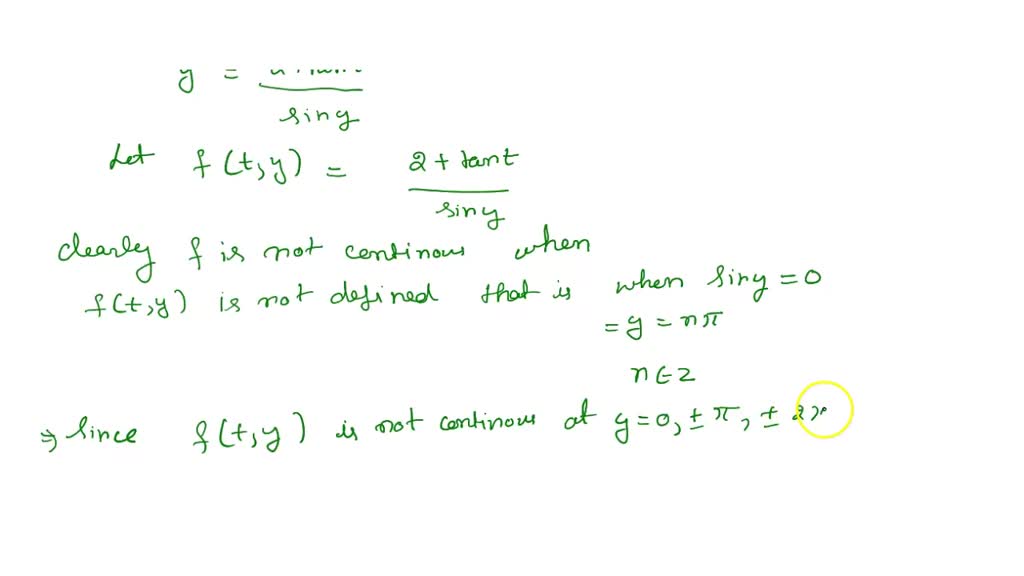 y =
sin y
Let f(t,y) = 2 + tant / sin y
clearly f is not continous when
f(t,y) is not defined that is when sin y = 0
= y = nπ
n ∈ z
⇒ Since f(t,y) is not continous at y = 0, ± π, ±